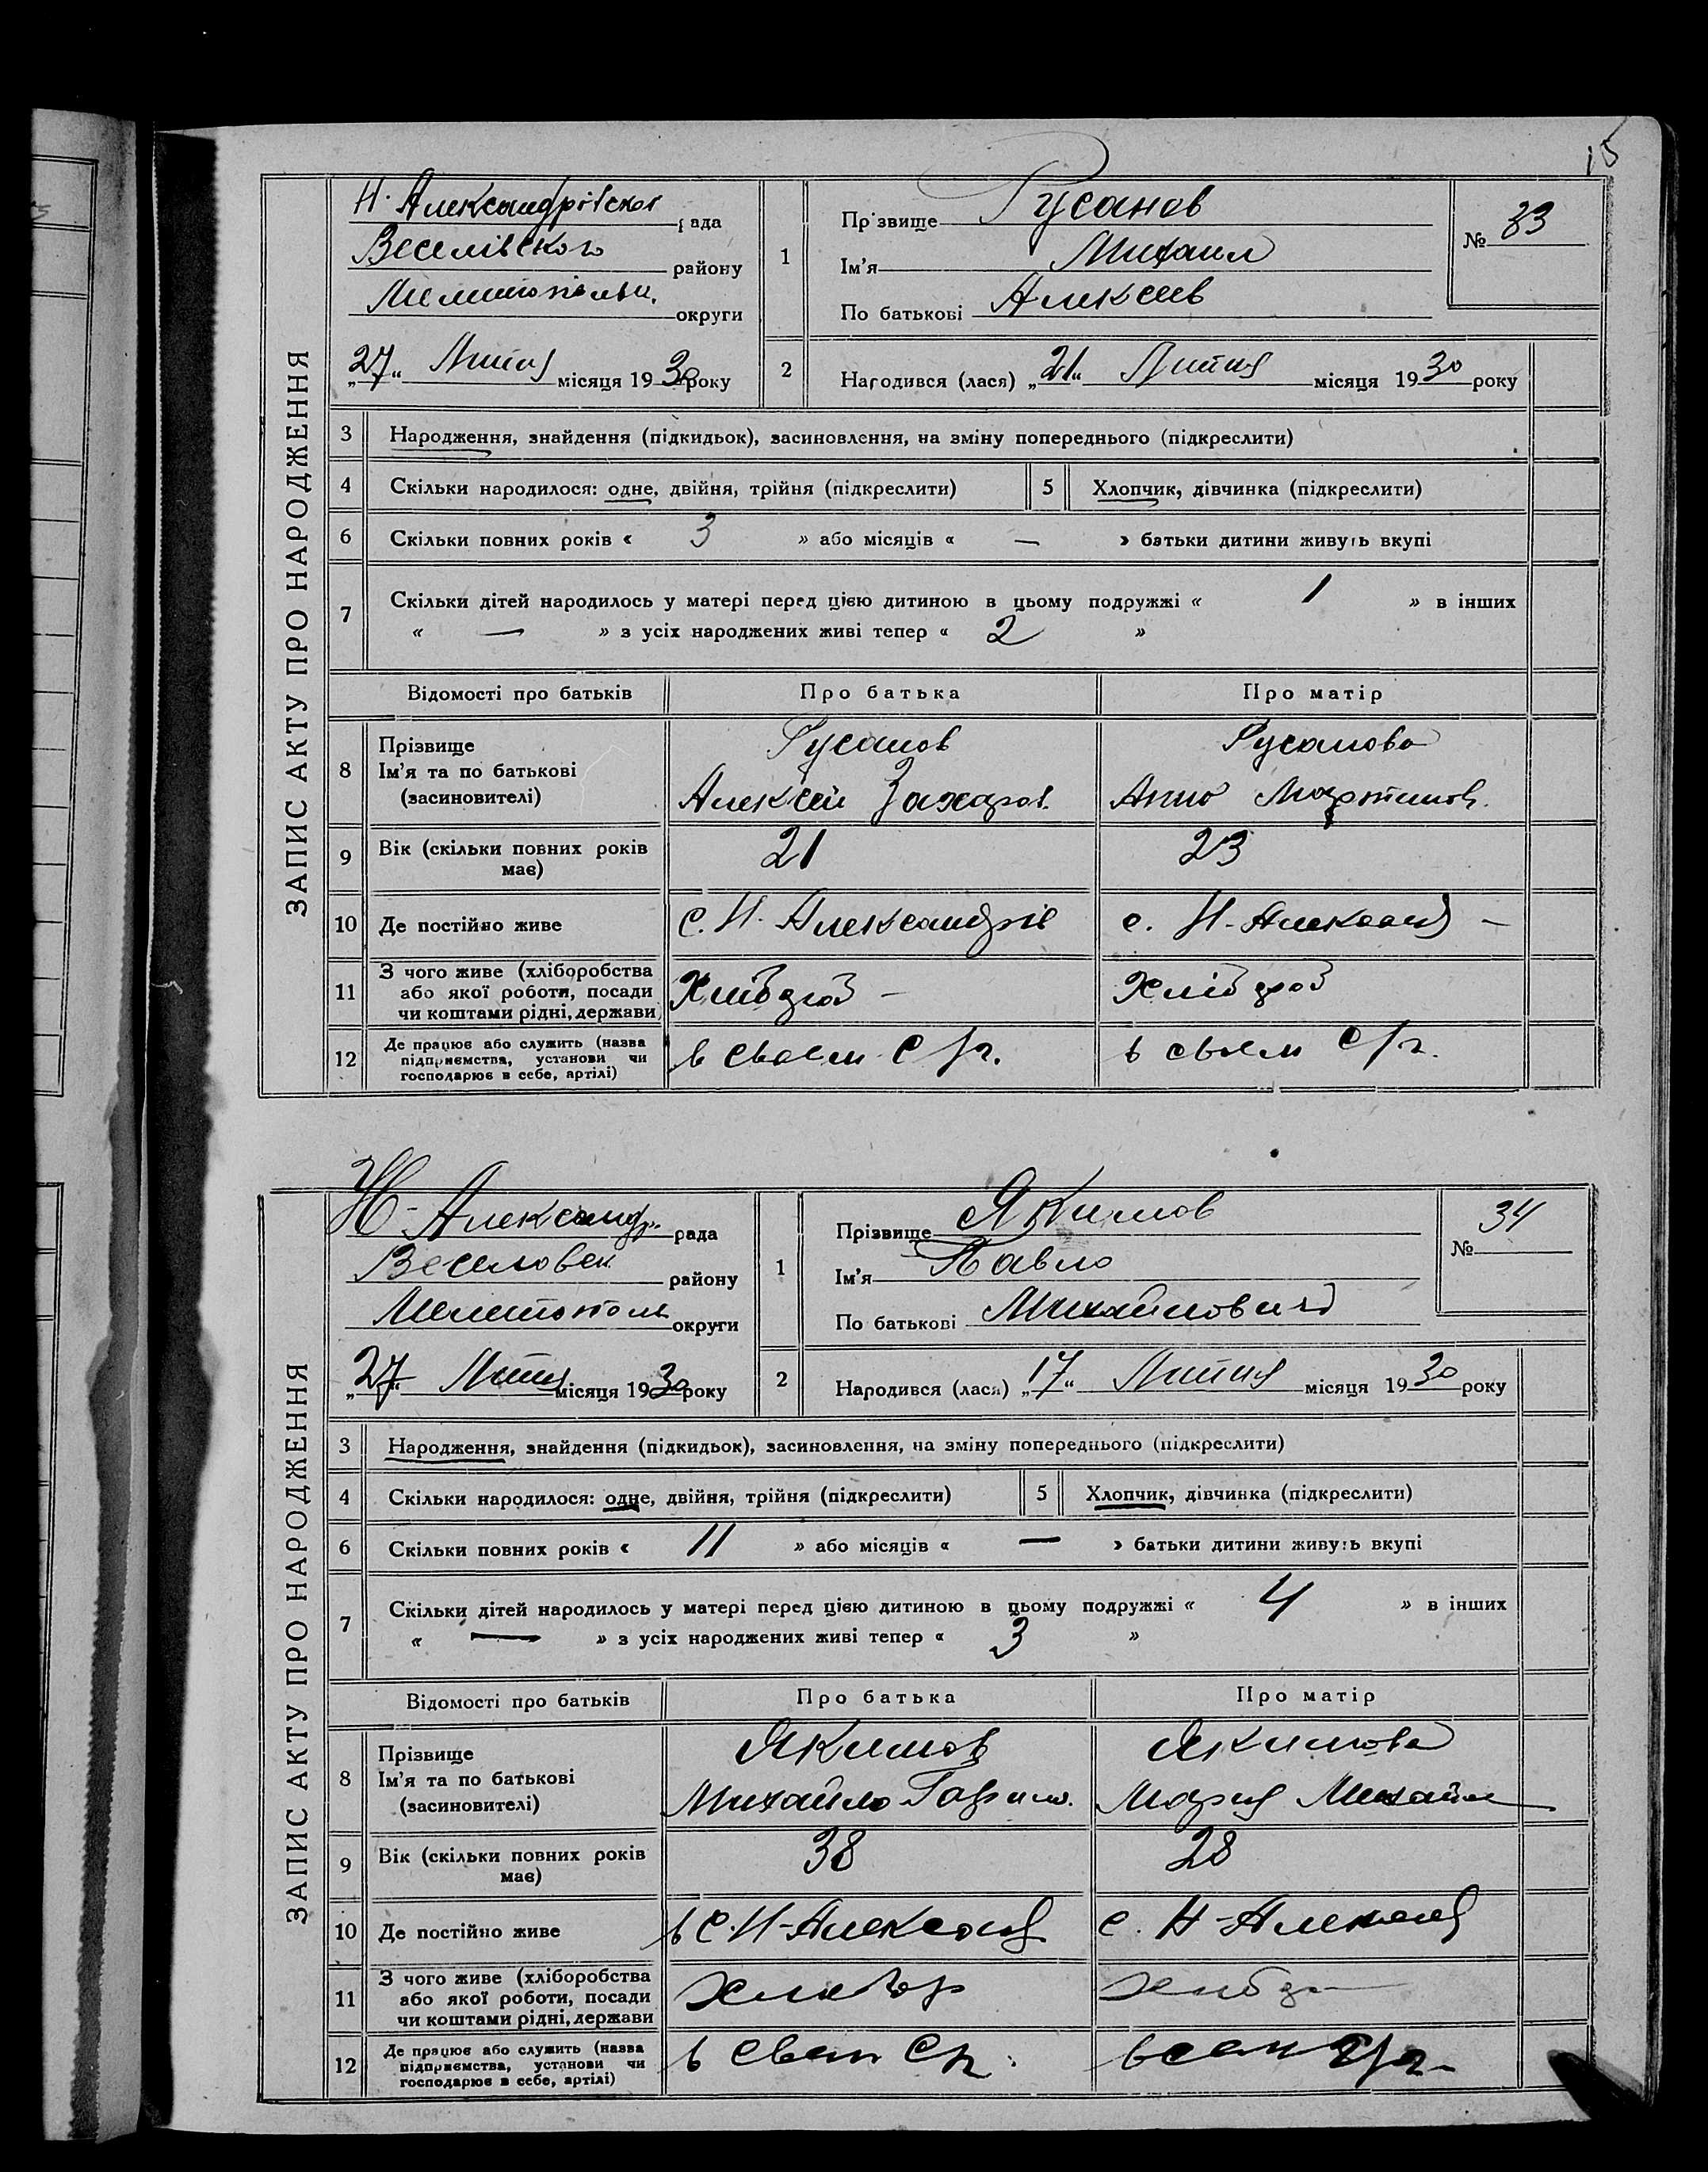 15
ЗАПИС АКТУ ПРО НАРОДЖЕННЯ
Н. Александрівская рада
Веселівского району
Мелитопільи. округи
„27“ Липня місяця 1930 року
1
Прізвище Русанов
Ім'я Михаил
По батькові Алексеев
№ 33
2
Народився (лася) „21“ Липня місяця 1930 року
3 Народження, знайдення (підкидьок), засиновлення, на зміну попереднього (підкреслити)
4 Скільки народилося: одне, двійня, трійня (підкреслити)
5 Хлопчик, дівчинка (підкреслити)
6 Скільки повних років « 3 » або місяців « — » батьки дитини живуть вкупі
7 Скільки дітей народилось у матері перед цією дитиною в цьому подружжі « 1 » в інших
« — » з усіх народжених живі тепер « 2 »
Відомості про батьків Про батька Про матір
8 Прізвище Русанов Русанова
Ім'я та по батькові
(засиновителі) Алексей Захаров. Анна Мартинов.
9 Вік (скільки повних років 21 23
має)
10 Де постійно живе с. Н. Александрів с. Н-Александ —
11 З чого живе (хліборобства
або якої роботи, посади Хлібороб — Хлібороб
чи коштами рідні, держави)
12 Де працює або служить (назва
підприємства, установи чи в своем с/г. в своем с/г.
господарює в себе, артілі)
ЗАПИС АКТУ ПРО НАРОДЖЕННЯ
Н-Александр. рада
Веселовск района району
Мелитополь округи
„27“ Липня місяця 1930 року
1
Прізвище Якимов
Ім'я Павло
По батькові Михайлович
№ 34
2
Народився (лася) „17“ Липня місяця 1930 року
3 Народження, знайдення (підкидьок), засиновлення, на зміну попереднього (підкреслити)
4 Скільки народилося: одне, двійня, трійня (підкреслити)
5 Хлопчик, дівчинка (підкреслити)
6 Скільки повних років « 11 » або місяців « — » батьки дитини живуть вкупі
7 Скільки дітей народилось у матері перед цією дитиною в цьому подружжі « 4 » в інших
« — » з усіх народжених живі тепер « 3 »
Відомості про батьків Про батька Про матір
8 Прізвище Якимов Якимова
Ім'я та по батькові
(засиновителі) Михайло Мария Михайл
9 Вік (скільки повних років 38 28
має)
10 Де постійно живе в с. Н-Александ с. Н-Александ
11 З чого живе (хліборобства
або якої роботи, посади
чи коштами рідні, держави
12 Де працює або служить (назва
підприємства, установи чи в своем с/г. с/г.
господарює в себе, артілі)